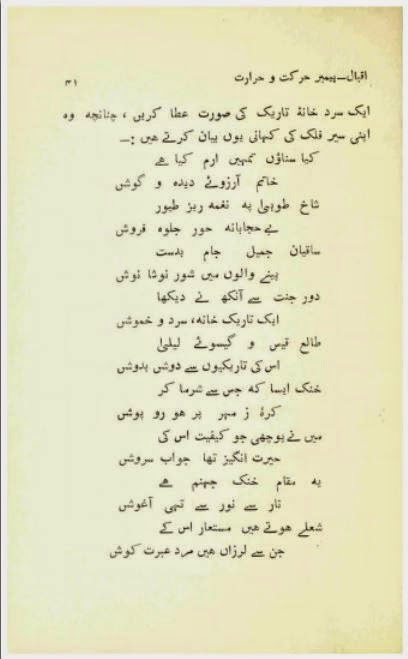 اقبال—پیمبر حرکت و حرارت ۴۱
ایک سرد خانۂ تاریک کی صورت عطا کریں ، چنانچہ وہ
اپنی سیر فلک کی کہانی یوں بیان کرتے ہیں :—
کیا سناؤں تمہیں ارم کیا ہے
خاتم آرزوئے دیدہ و گوش
شاخ طوبیٰ پہ نغمہ ریز طیور
بے حجابانہ حور جلوہ فروش
ساقیان جمیل جام بدست
پینے والوں میں شور نوشا نوش
دور جنت سے آنکھ نے دیکھا
ایک تاریک خانہ، سرد و خموش
طالع قیس و گیسوئے لیلیٰ
اس کی تاریکیوں سے دوش بدوش
خنک ایسا کہ جس سے شرما کر
کرۂ ز مہر پر ہو رو پوش
میں نے پوچھی جو کیفیت اس کی
حیرت انگیز تھا جواب سروش
یہ مقام خنک جہنم ہے
نار سے نور سے تہی آغوش
شعلے ہوتے ہیں مستعار اس کے
جن سے لرزاں ہیں مرد عبرت کوش